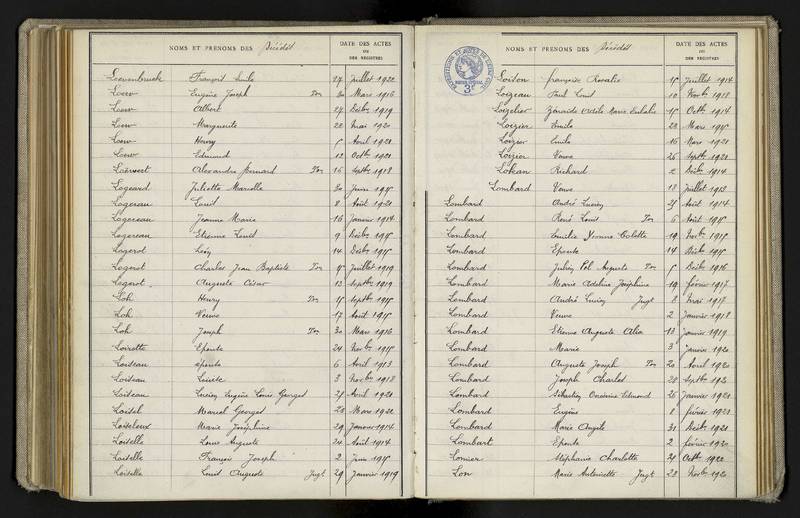 NOMS ET PRENOMS DES Décédés
DATE DES ACTES
OU
DES REGISTRES
Loevenbruck François Emile 27 Juillet 1922
Loew Eugène Joseph Ton 30 Mars 1916
Loew Albert 27 Décbre 1919
Loew Marguerite 22 Mai 1920
Loew Henry 5 Avril 1921
Loew Edmond 12 Octbre 1921
Alexandre Fernand Ton 16 Septbre 1918
Logeard Juliette Marcelle 30 Juin 1915
Logereau Louis 8 Août 1921
Logereau Jeanne Marie 16 Janvier 1914
Logereau Etienne Louis 9 Décbre 1915
Logerot Léon 14 Décbre 1915
Logerot Charles Jean Baptiste Ton 9 Juillet 1919
Logerot Auguste César 13 Septbre 1919
Loh Henry Ton 15 Septbre 1915
Loh Veuve 17 Août 1915
Loh Joseph Ton 30 Mars 1916
Loirette Epouse 24 Novbre 1915
Loiseau épouse 6 Avril 1913
Loiseau 3 Novbre 1918
Loiseau Lucien Eugène Louis Georges 25 Avril 1920
Loisel Marcel Georges 28 Mars 1922
Loiseleux Marie Joséphine 29 Janvier 1914
Loiselle Louis Auguste 24 Août 1914
Loiselle François Joseph 2 Juin 1915
Loiselle Louis Auguste Jugt 29 Janvier 1919
NOMS ET PRENOMS DES Décédés
DATE DES ACTES
OU
DES REGISTRES
3F
Loiton Françoise Rosalie 15 Juillet 1914
Loizeau Paul Louis 10 Novbre 1918
Loizelier Zénaïde Odile Marie Eulalie 15 Octbre 1914
Loizier Emile 23 Mars 1915
Loizier Emile 16 Mars 1921
Loizier Veuve 26 Septbre 1921
Lokean Richard 2 Décbre 1914
Lombard Veuve 18 Juillet 1913
Lombard André Lucien 25 Août 1914
Lombard René Louis Ton 6 Août 1915
Lombard Emilie Yvonne Colette 19 Novbre 1915
Lombard Epouse 14 Décbre 1915
Lombard Julien Pol Auguste Ton 5 Décbre 1916
Lombard Marie Adeline Joséphine 19 février 1917
Lombard André Lucien Jugt 8 Mai 1917
Lombard Veuve 2 Janvier 1918
Lombard Etienne Auguste 13 Janvier 1919
Lombard Marie 3 Janvier 1920
Lombard Auguste Joseph Ton 20 Avril 1920
Lombard Joseph Charles 28 Septbre
Lombard Sébastien Onésime Edmond 26 Janvier 1921
Lombard Eugène 1 février 1921
Lombard Marie Angèle 31 Décbre 1921
Lombart Epouse 2 février 1920
Lomier Stéphanie Charlotte 21 Octbre 1922
Lon Marie Antoinette Jugt 23 Novbre